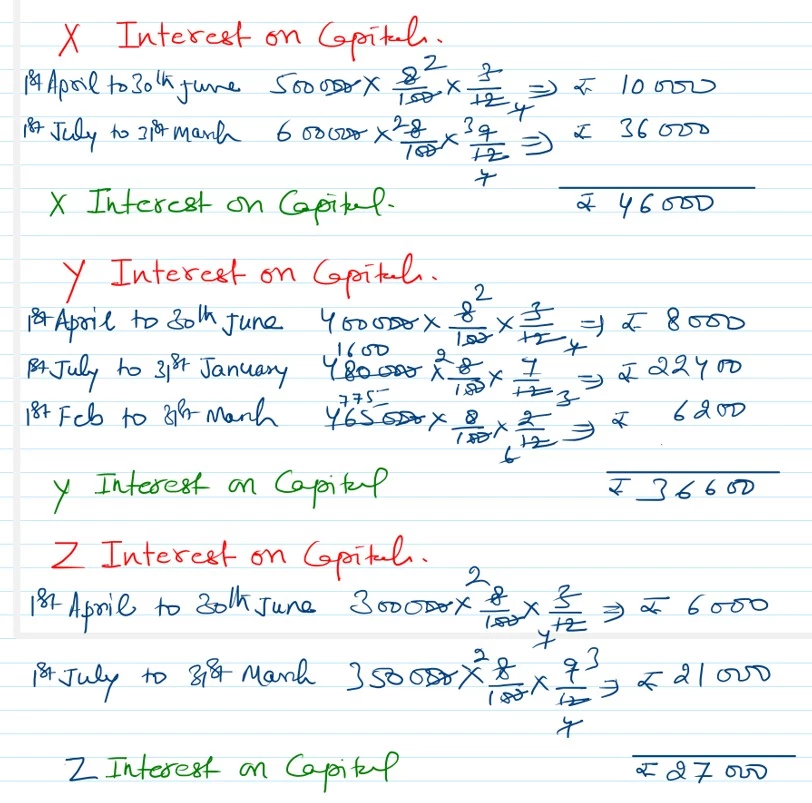 X Interest on Capital.
1st April to 30th June 500000 × 8/100 × 3/12 ⇒ ₹ 10000
1st July to 31st March 600000 × 8/100 × 9/12 ⇒ ₹ 36000
X Interest on Capital. ₹ 46000
Y Interest on Capital.
1st April to 30th June 400000 × 8/100 × 3/12 ⇒ ₹ 8000
1st July to 31st January 480000 × 8/100 × 7/12 ⇒ ₹ 22400
1st Feb to 31st March 465000 × 8/100 × 2/12 ⇒ ₹ 6200
Y Interest on Capital ₹ 36600
Z Interest on Capital.
1st April to 30th June 300000 × 8/100 × 3/12 ⇒ ₹ 6000
1st July to 31st March 350000 × 8/100 × 9/12 ⇒ ₹ 21000
Z Interest on Capital ₹ 27000